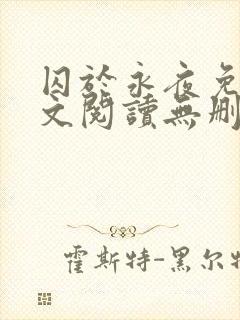 囚於永夜免
文閱讀無刪
霍斯特-黑尔特